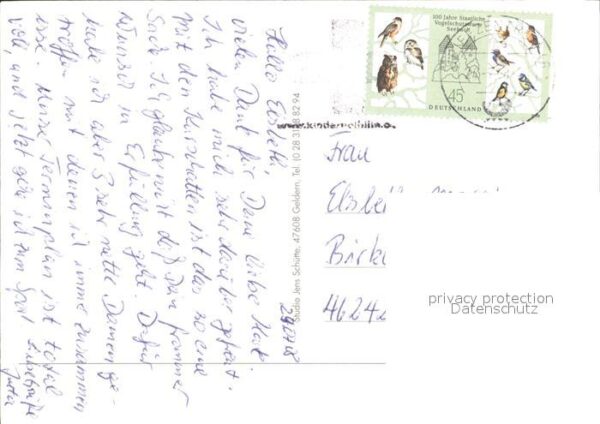 Hallo Elsbeth,
vielen Dank für Deine liebe Karte.
Ich habe mich sehr darüber gefreut.
Mit den Kurschatten ist das so eine
Sache. Ich glaube nicht daß Dein frommer
Wunsch in Erfüllung geht. Dafür
habe ich aber 3 sehr nette Damen ge-
troffen mit denen ich immer zusammen
esse. Unser Terminplan ist total
voll, und jetzt gehe ich zum Sport
Liebe Grüße
Jutta
Studio Jens Schütte, 47608 Geldern, Tel. (0 28 31) 8 82 94
100 Jahre Staatliche
Vogelschutzwarte
Seebach
45
DEUTSCHLAND
Frau
Birke
4624
privacy protection
Datenschutz